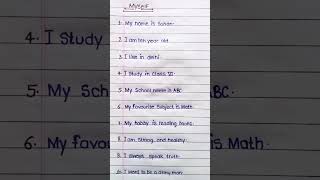 Myself
1. My name is Sohan.
2. I am ten year old.
3. I live in delhi
4. I Study in Class VI.
5. My School name is ABC.
6. My favourite Subject is Math.
7. My hobby is reading books.
8. I am Strong and healthy.
9. I always speak truth.
10. I want to be a army man.
4. I Study
5. My Sch
ABC.
6. My favou
is Math.